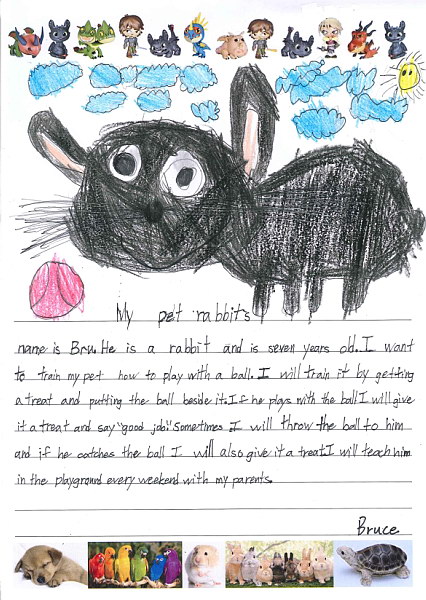 My pet rabbit's
name is Bru. He is a rabbit and is seven years old. I want
to train my pet how to play with a ball. I will train it by getting
a treat and putting the ball beside it. If he plays with the ball I will give
it a treat and say "good job". Sometimes I will throw the ball to him
and if he catches the ball I will also give it a treat. I will teach him
in the playground every weekend with my parents.
Bruce